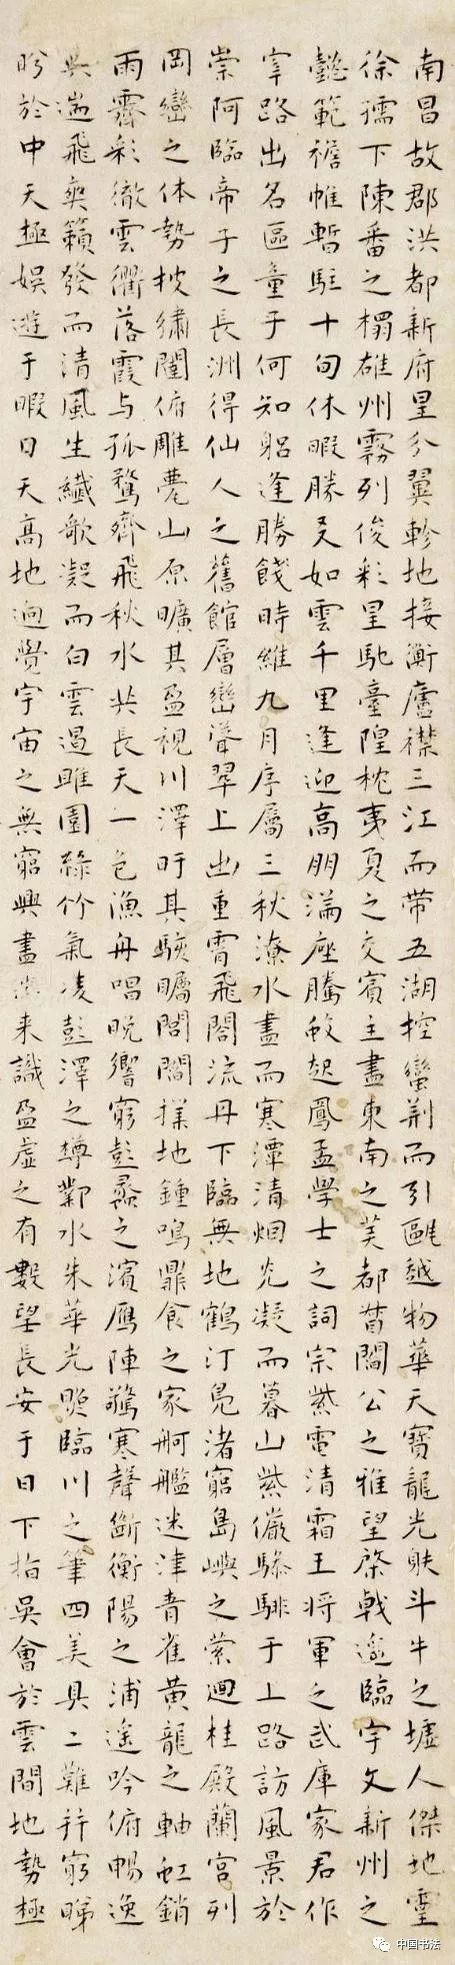 南昌故郡洪都新府星分翼軫地接衡廬襟三江而帶五湖控蠻荊而引甌越物華天寶龍光射斗牛之墟人傑地靈
徐孺下陳番之榻雄州霧列俊彩星馳臺隍枕夷夏之交賓主盡東南之美都督閻公之雅望棨戟遙臨宇文新州之
懿範襜帷暫駐十旬休暇勝友如雲千里逢迎高朋滿座騰蛟起鳳孟學士之詞宗紫電清霜王將軍之武庫家君作
宰路出名區童子何知躬逢勝餞時維九月序屬三秋潦水盡而寒潭清烟光凝而暮山紫儼驂騑于上路訪風景於
崇阿臨帝子之長洲得仙人之舊館層巒聳翠上出重霄飛閣流丹下臨無地鶴汀鳧渚窮島嶼之縈迴桂殿蘭宮列
岡巒之体勢披繡闥俯雕甍山原曠其盈視川澤盱其駭矚閭閻撲地鍾鳴鼎食之家舸艦迷津青雀黃龍之軸虹銷
雨霽彩徹雲衢落霞与孤鶩齊飛秋水共長天一色漁舟唱晚響窮彭蠡之濱鴈陣驚寒聲斷衡陽之浦遙吟俯暢逸
興遄飛爽籟發而清風生纖歌凝而白雲遏睢園綠竹氣凌彭澤之樽鄴水朱華光照臨川之筆四美具二難并窮睇
眄於中天極娛遊于暇日天高地迥覺宇宙之無窮興盡悲来識盈虛之有數望長安于日下指吳會於雲間地勢極
中国书法